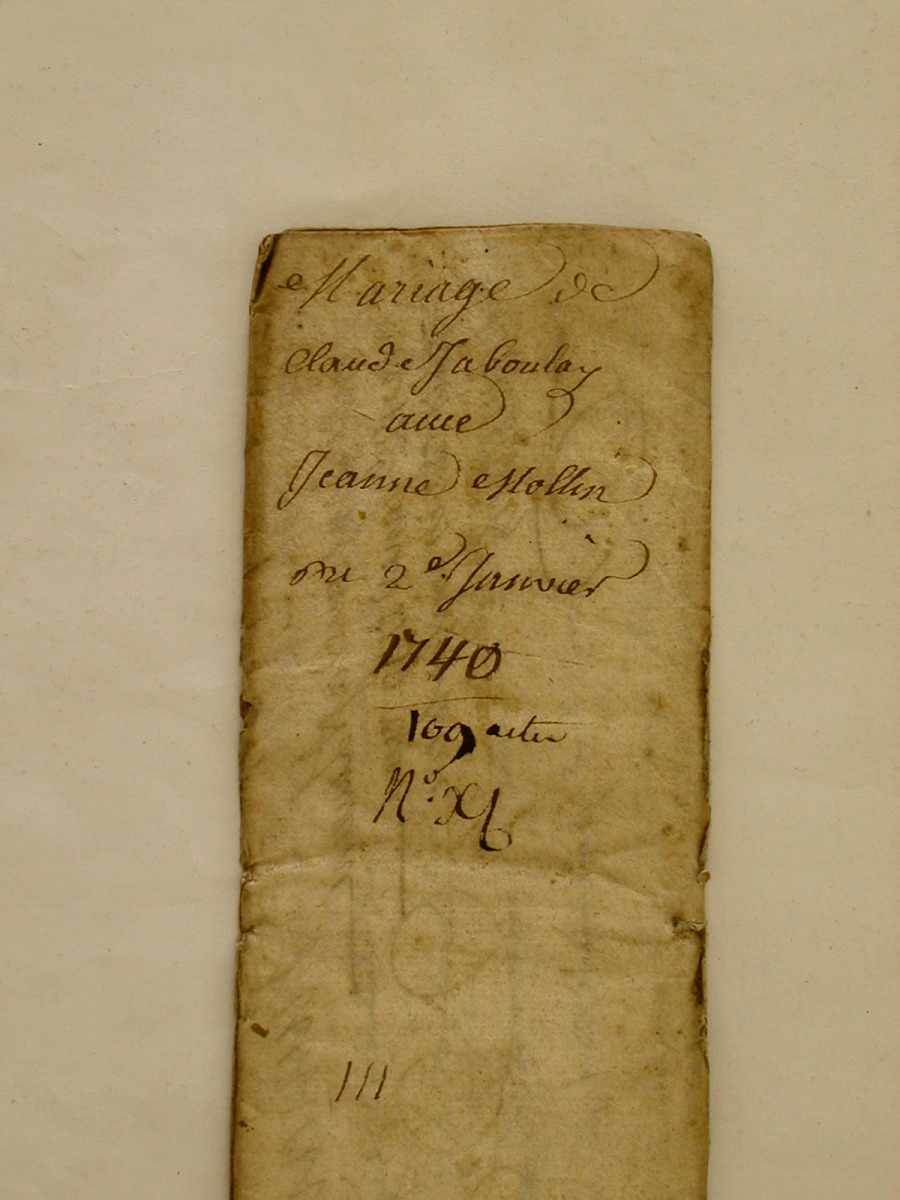 Mariage de
Claude Jaboulay
avec
Jeanne Mollin
Du 2e Janvier
1740
109 actes
No. XI
111